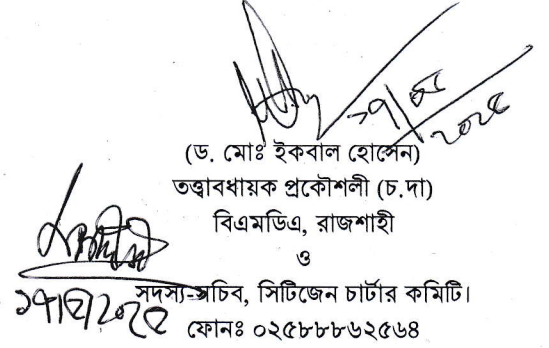 (ড. মোঃ ইকবাল হোসেন)
তত্ত্বাবধায়ক প্রকৌশলী (চ.দা)
বিএমডিএ, রাজশাহী
ও
সদস্য-সচিব, সিটিজেন চার্টার কমিটি।
ফোনঃ ০২৫৮৮৮৬২৫৬৪